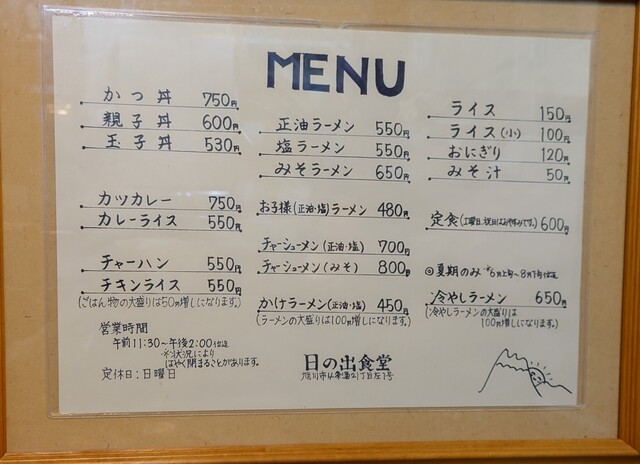 MENU
かつ丼 750円
親子丼 600円
玉子丼 530円
カツカレー 750円
カレーライス 550円
チャーハン 550円
チキンライス 550円
(ごはん物の大盛りは50円増しになります。)
営業時間
午前11:30～午後2:00位迄
※状況により
はやく閉まることがあります。
定休日:日曜日
正油ラーメン 550円
塩ラーメン 550円
みそラーメン 650円
お子様(正油・塩)ラーメン 480円
チャーシューメン(正油・塩) 700円
チャーシューメン(みそ) 800円
かけラーメン(正油・塩) 450円
(ラーメンの大盛りは100円増しになります。)
日の出食堂
旭川市4条通21丁目左1号
ライス 150円
ライス(小) 100円
おにぎり 120円
みそ汁 50円
定食(土曜日、祝日はお休みです。) 600円
◎夏期のみ 6月上旬～8月下旬位迄
冷やしラーメン 650円
(冷やしラーメンの大盛りは
100円増しになります。)